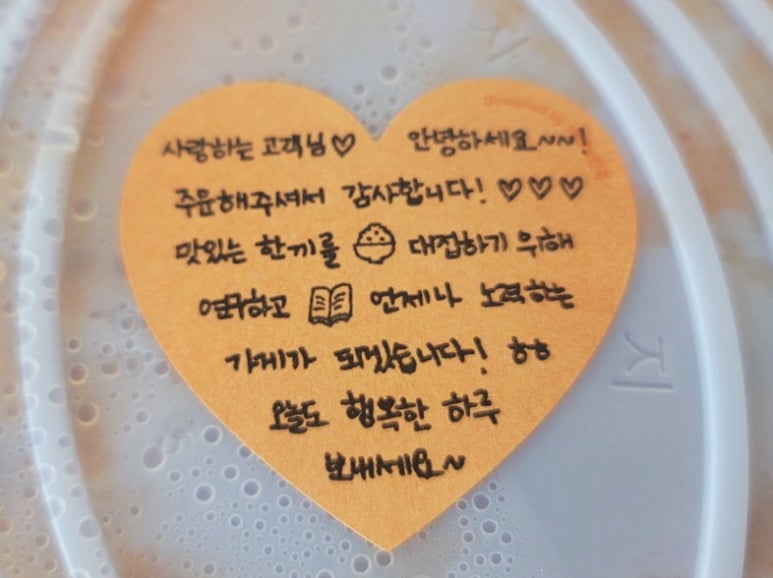 사랑하는 고객님♡ 안녕하세요~~!
주문해주셔서 감사합니다! ♡♡♡
맛있는 한끼를 대접하기 위해
연구하고 언제나 노력하는
가게가 되겠습니다! ㅎㅎ
오늘도 행복한 하루
보내세요~
지
지